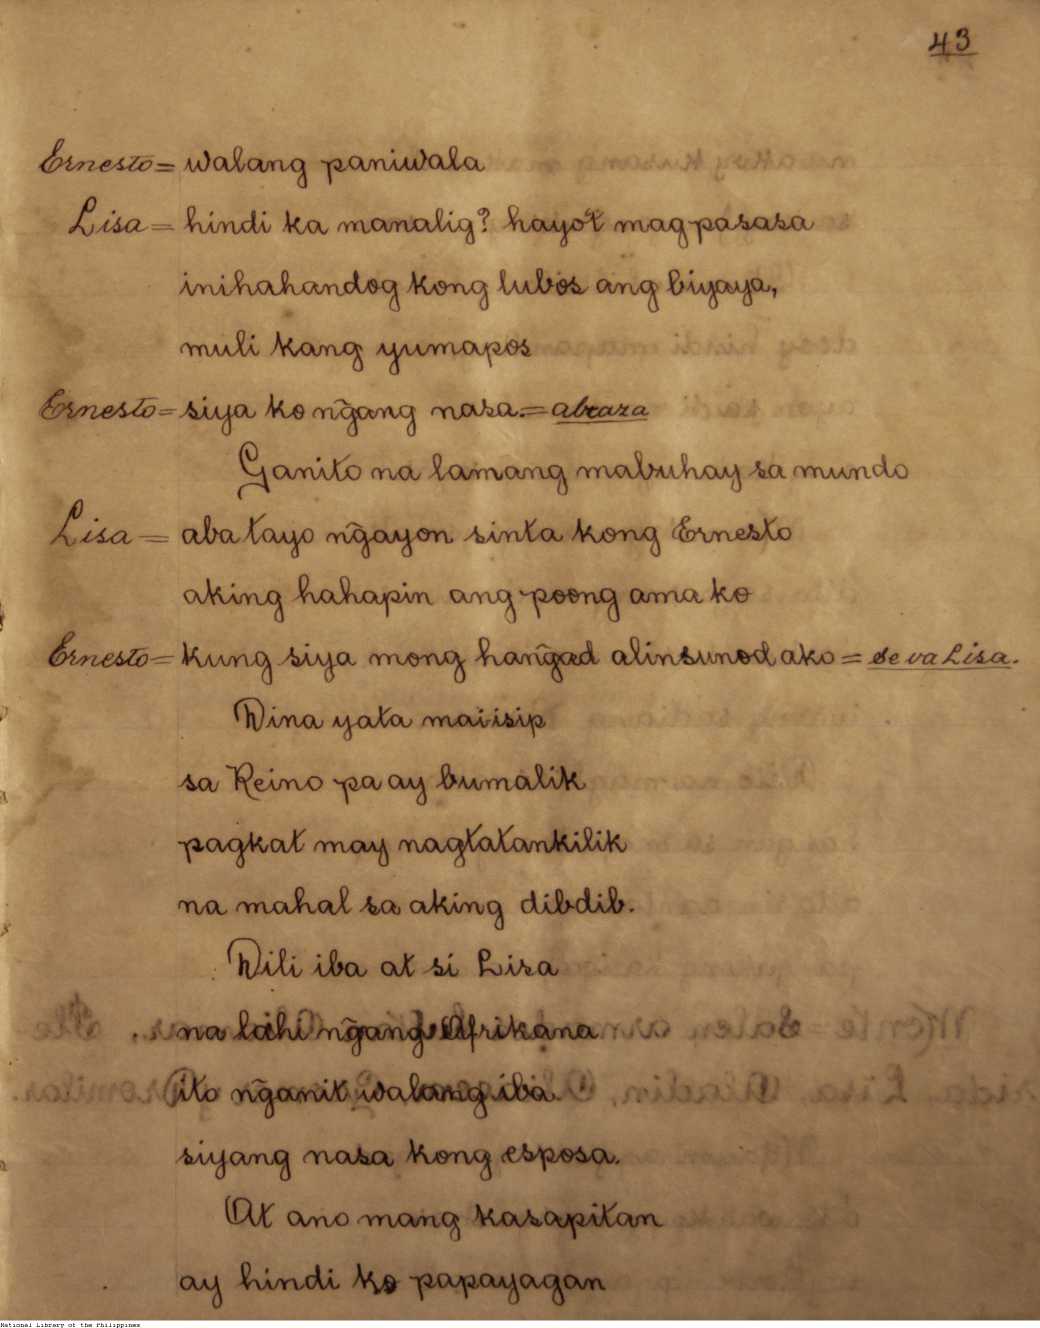 43
Ernesto = walang paniwala
Lisa = hindi ka manalig? hayo't magpasasa
inihahandog kong lubos ang biyaya,
muli kang yumapos
Ernesto = siya ko ng̃ang nasa. = abraza
Ganito na lamang mabuhay sa mundo
Lisa = aba tayo ng̃ayon sinta kong Ernesto
aking hahapin ang poong ama ko
Ernesto = kung siya mong hang̃ad alinsunod ako = se va Lisa.
Dina yata maiisip
sa Reino pa ay bumalik
pagkat may nagtatankilik
na mahal sa aking dibdib.
Dili iba at si Lisa
na lahi ng̃ang Afrikana
ito ng̃anit walang iba.
siyang nasa kong esposa.
At ano mang kasapitan
ay hindi ko papayagan
National Library of the Philippines